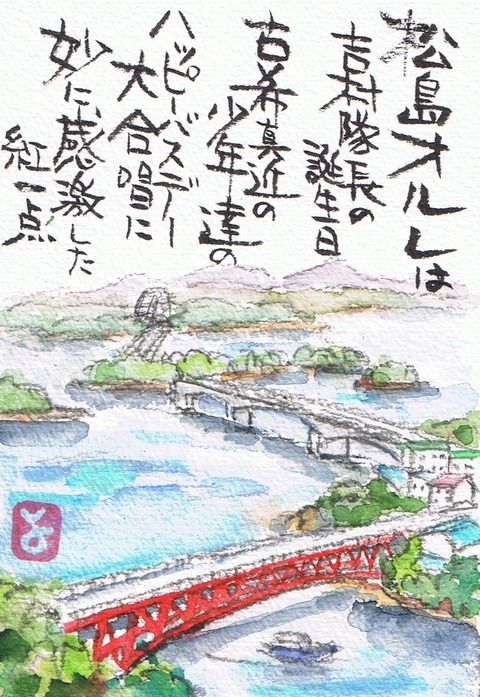 松島オルレは
吉村隊長の
誕生日
古希真近の
少年達の
ハッピーバスデー
大合唱に
妙に感激した
紅一点